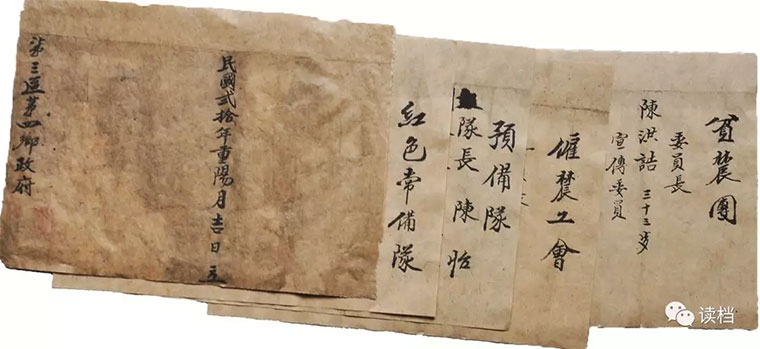 貧農團
委員長
陳洪誥 三十三歲
宣傳委員
僱農工會
預備隊
隊長 陳怡
紅色常備隊
民國弍拾年重陽月吉日立
第三區第四鄉政府
读档